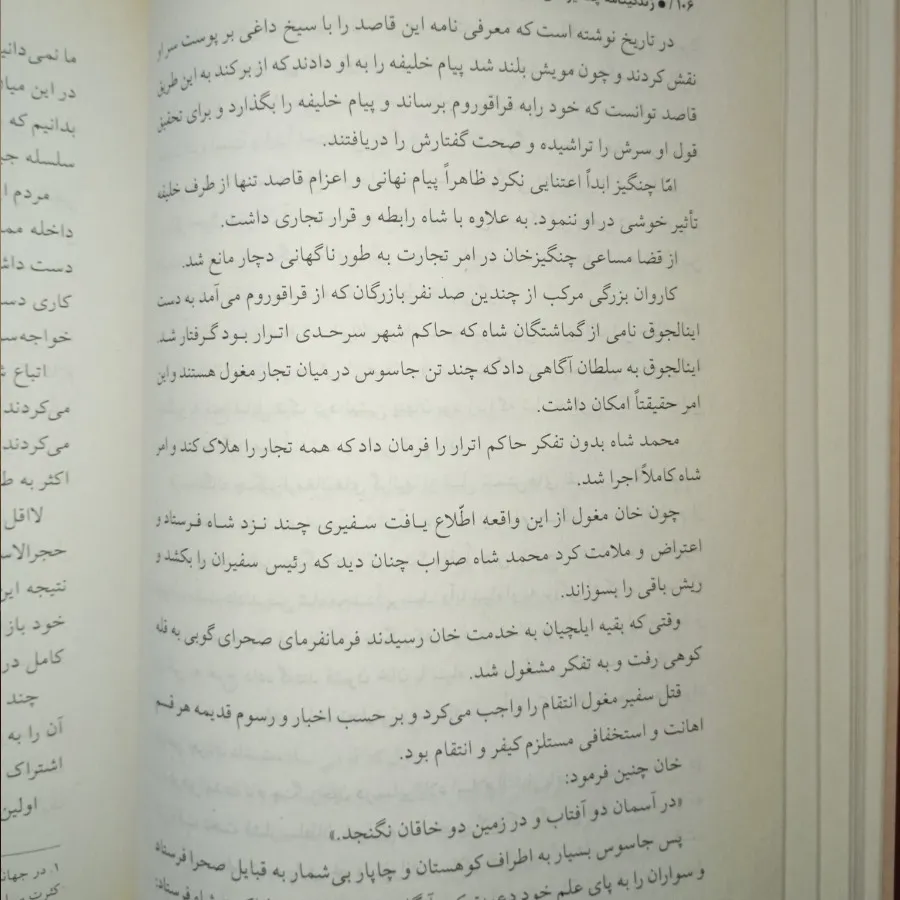 ۱۰۶ / ● زندگینامه
در تاریخ نوشته است که معرفی نامه این قاصد را با سیخ داغی بر پوست سر او
نقش کردند و چون مویش بلند شد پیام خلیفه را به او دادند که از بر کند به این طریق
قاصد توانست که خود رابه قراقوروم برساند و پیام خلیفه را بگذارد و برای تحقیق
قول او سرش را تراشیده و صحت گفتارش را دریافتند.
امّا چنگیز ابداً اعتنایی نکرد ظاهراً پیام نهانی و اعزام قاصد تنها از طرف خلیفه
تأثیر خوشی در او ننمود. به علاوه با شاه رابطه و قرار تجاری داشت.
از قضا مساعی چنگیزخان در امر تجارت به طور ناگهانی دچار مانع شد.
کاروان بزرگی مرکب از چندین صد نفر بازرگان که از قراقوروم می‌آمد به دست
اینالجوق نامی از گماشتگان شاه که حاکم شهر سرحدی اترار بود گرفتار شد.
اینالجوق به سلطان آگاهی داد که چند تن جاسوس در میان تجار مغول هستند و این
امر حقیقتاً امکان داشت.
محمد شاه بدون تفکر حاکم اترار را فرمان داد که همه تجار را هلاک کند و امر
شاه کاملاً اجرا شد.
چون خان مغول از این واقعه اطّلاع یافت سفیری چند نزد شاه فرستاد و
اعتراض و ملامت کرد محمد شاه صواب چنان دید که رئیس سفیران را بکشد و
ریش باقی را بسوزاند.
وقتی که بقیه ایلچیان به خدمت خان رسیدند فرمانفرمای صحرای گوبی به قله
کوهی رفت و به تفکر مشغول شد.
قتل سفیر مغول انتقام را واجب می‌کرد و بر حسب اخبار و رسوم قدیمه هر قسم
اهانت و استخفافی مستلزم کیفر و انتقام بود.
خان چنین فرمود:
«در آسمان دو آفتاب و در زمین دو خاقان نگنجد.»
پس جاسوس بسیار به اطراف کوهستان و چاپار بی‌شمار به قبایل صحرا فرستاد
و سواران را به پای علم خود
ما نمی‌دانی
در این میا
بدانیم که
سلسله
مردم
داخله
دست
کاری
خواجه
اتباع
می‌کردند
می‌کردند
اکثر به
لااقل
حجرالاس
نتیجه این
خود باز
کامل در
چند
آن را به
اشتراک
اولین
۱. در جهان
کثرت